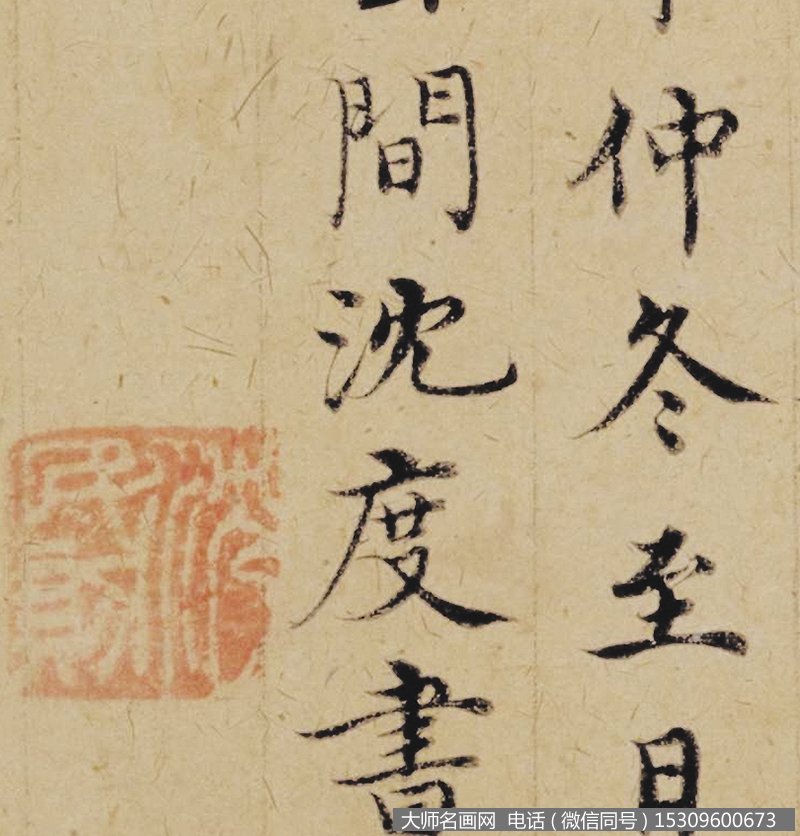 仲冬至日
間沈度書
大师名画网 电话(微信同号)15309600673